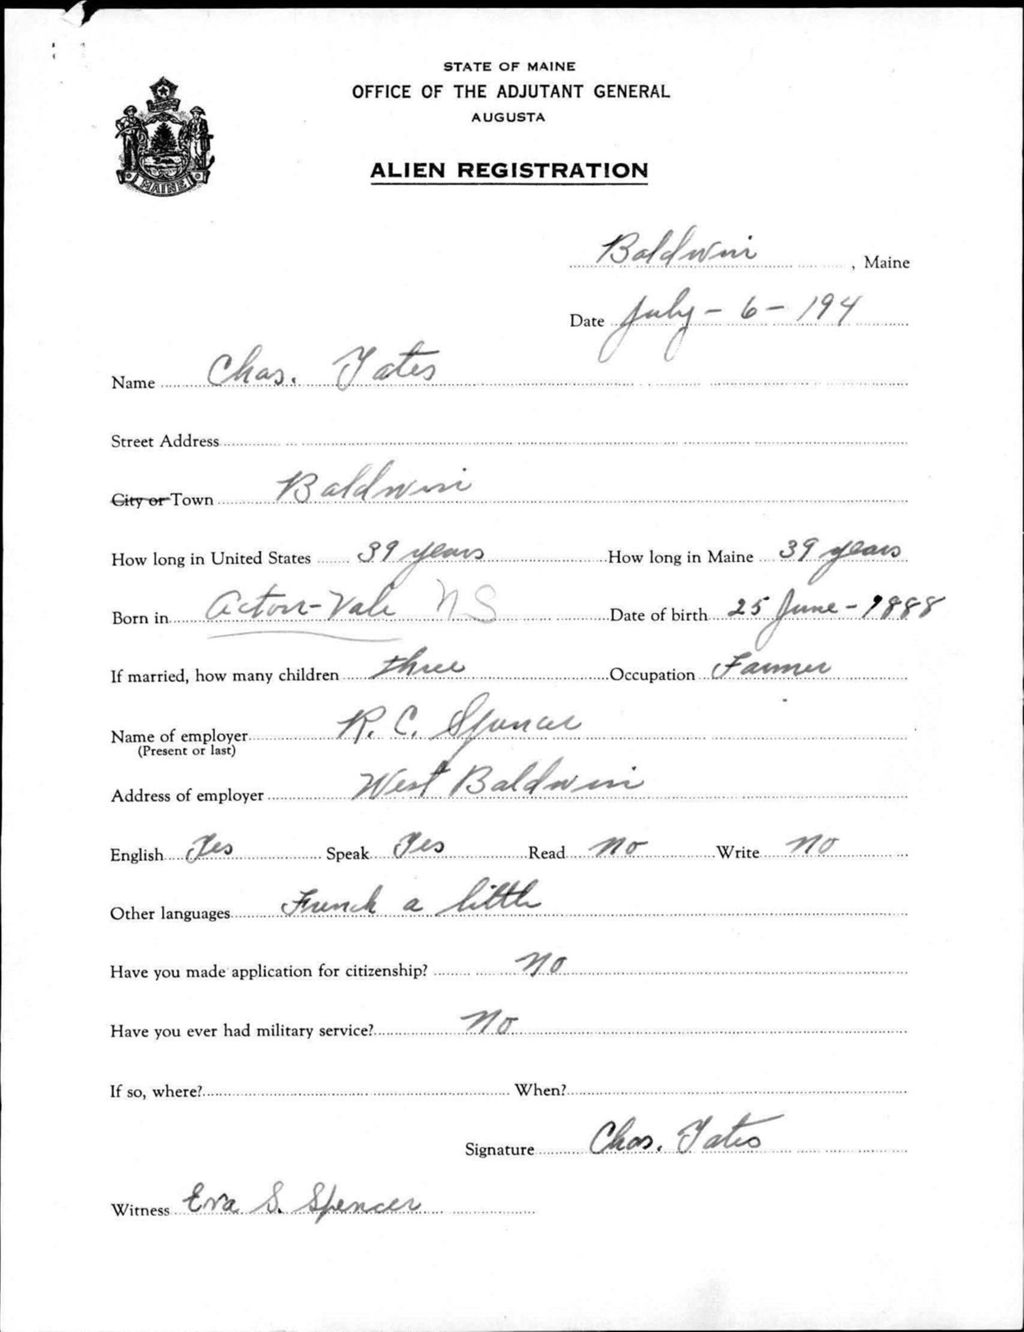 STATE OF MAINE
OFFICE OF THE ADJUTANT GENERAL
AUGUSTA
ALIEN REGISTRATION
MAINE
Baldwin, Maine
Date July - 6 - 194
Name Chas. Yates
Street Address
City or Town Baldwin
How long in United States 39 years How long in Maine 39 years
Born in Acton-Vale NS Date of birth 25 June - 1888
If married, how many children three Occupation Farmer
Name of employer R. C. Spencer
(Present or last)
Address of employer West Baldwin
English Yes Speak Yes Read No Write No
Other languages French a little
Have you made application for citizenship? No
Have you ever had military service? No
If so, where? When?
Signature Chas. Yates
Witness Eva S. Spencer